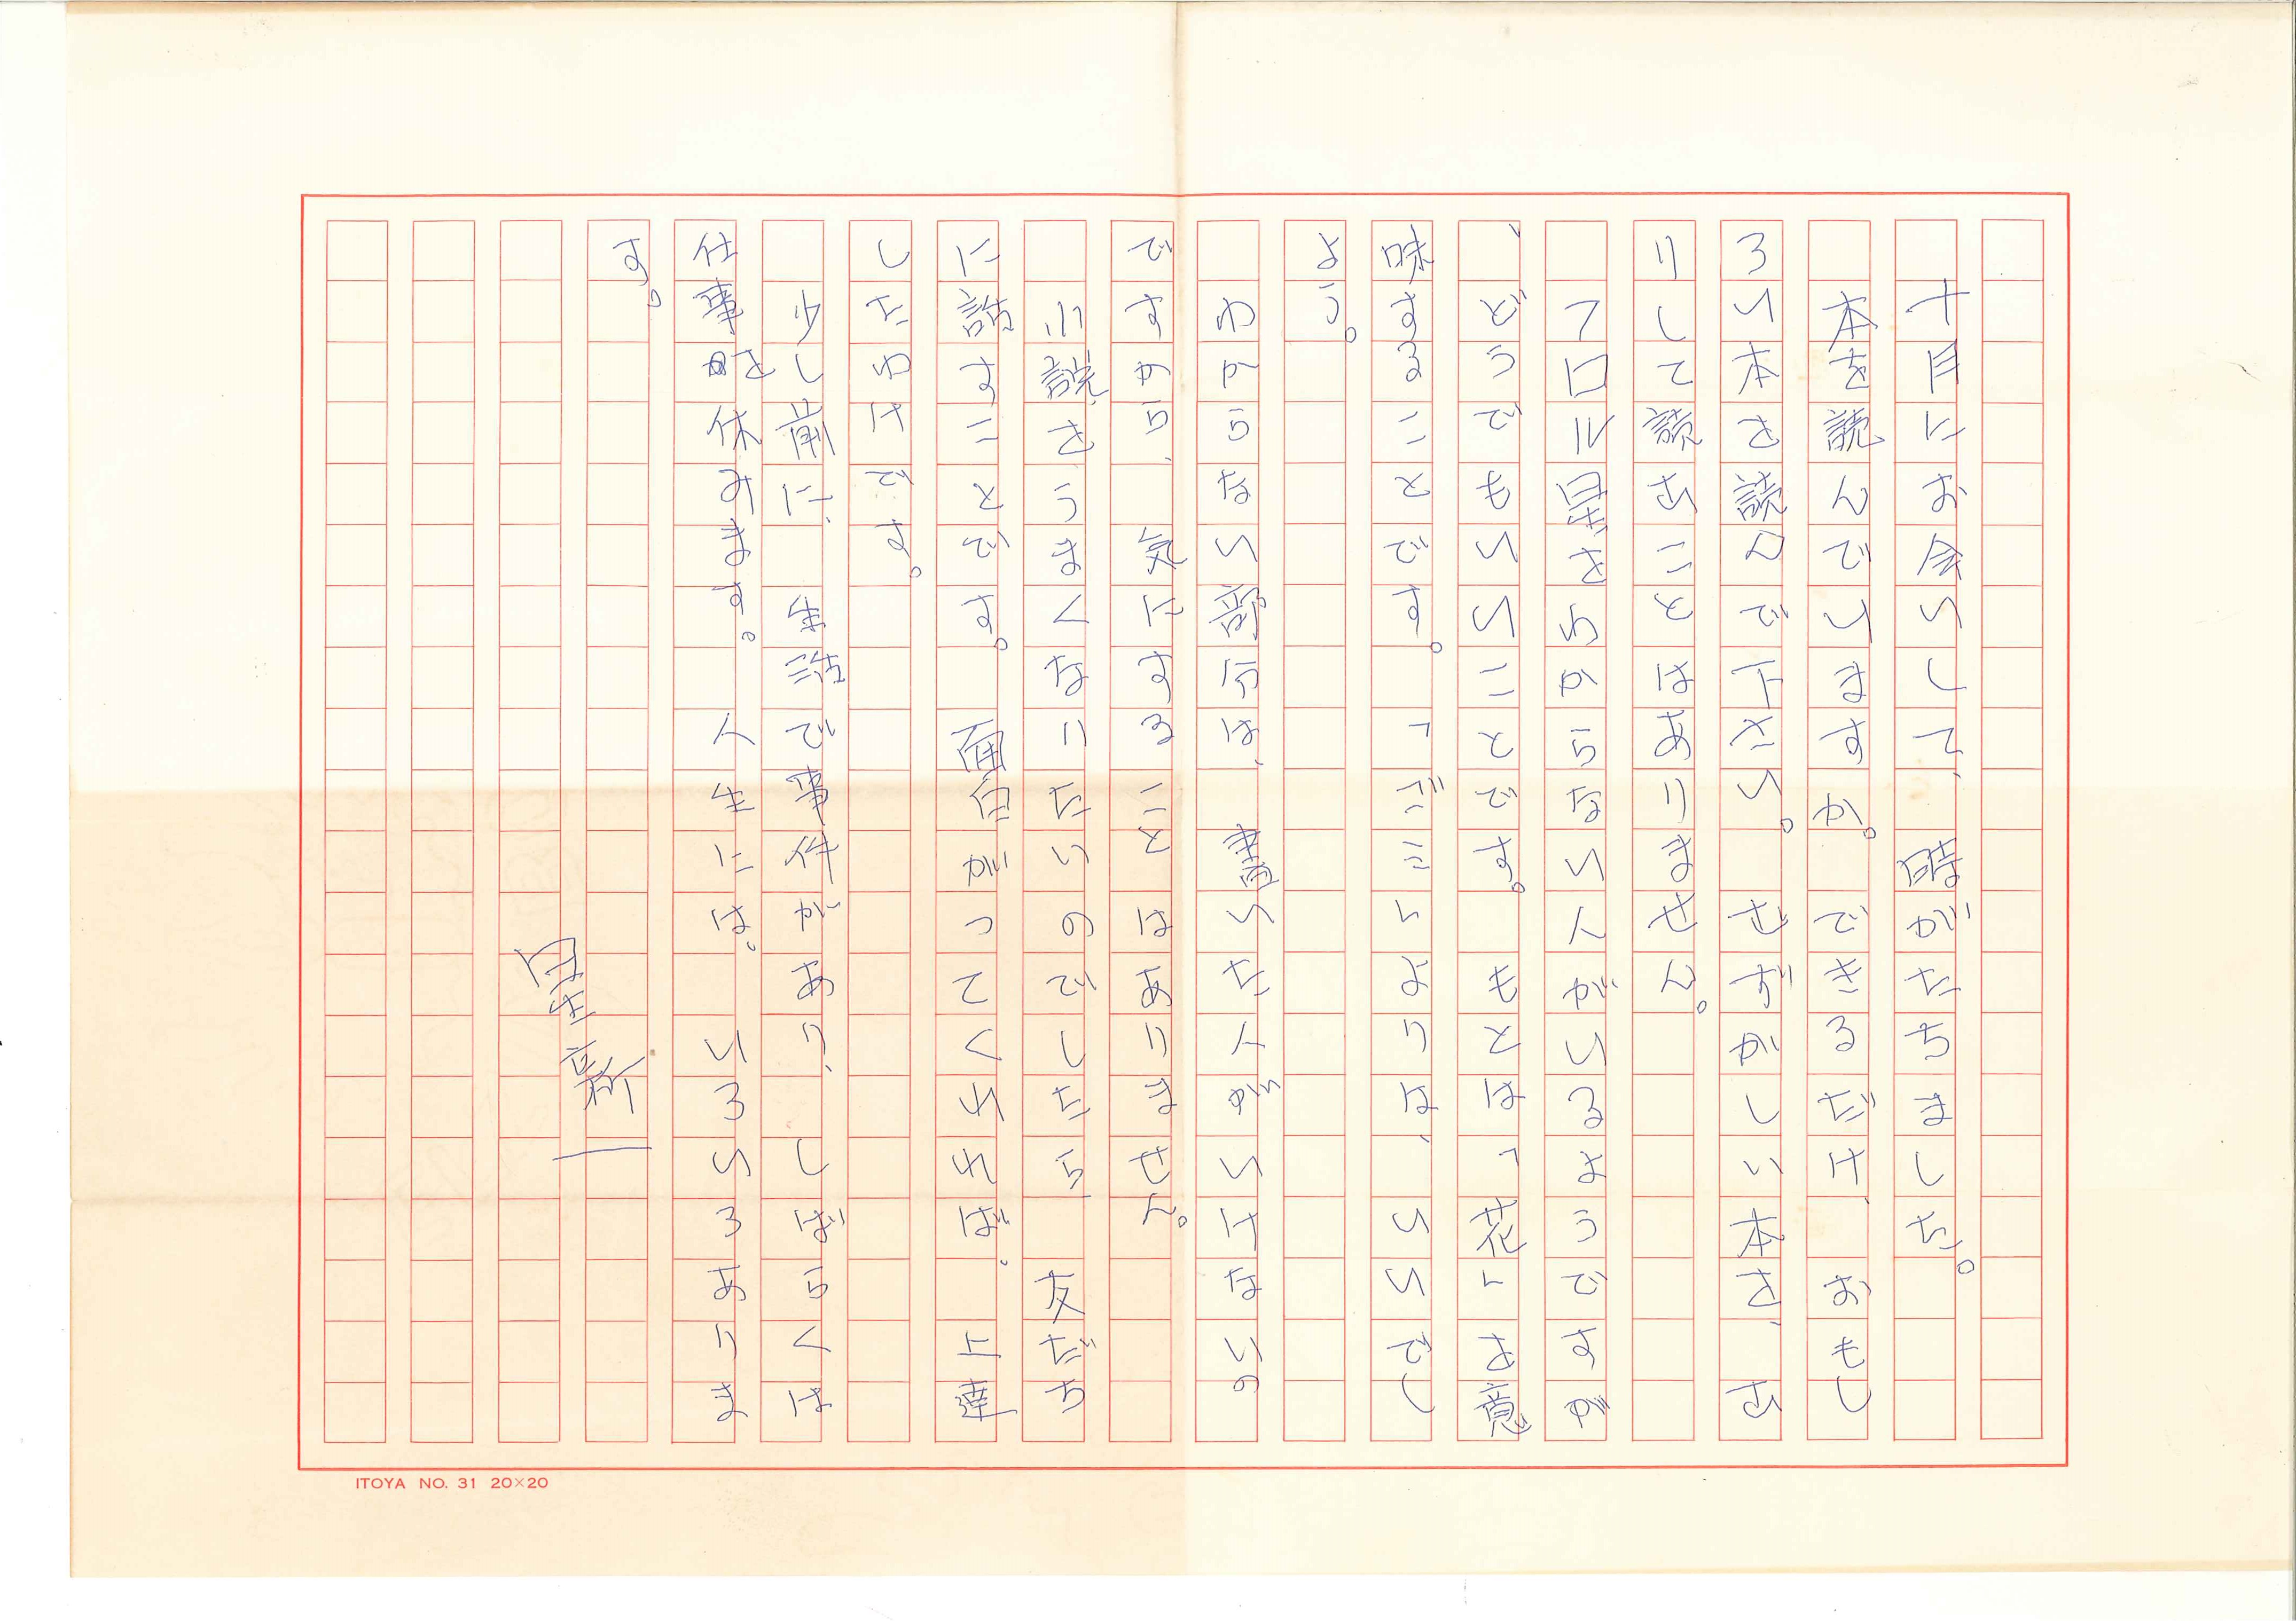 十月にお会いして、時がたちました。
本を読んでいますか。できるだけ、おもし
ろい本を読んで下さい。むずかしい本を、む
りして読むことはありません。
「口に星さちからない人がいるようですが
、どうでもいいことです。もとは「花」よ意
味することです。「ごご」よりは、いいでし
ょう。
わからない部分は、書いた人がいけないの
ですから、気にすることはありません。
小説をうまくなりたいのでしたら、友だち
に話すことです。面白がってくれれば、上達
したわけです。
少し前に、生活で事件があり、しばらくは
仕事を休みます。人生には、いろいろありま
す。
星新一
ITOYA NO. 31 20×20